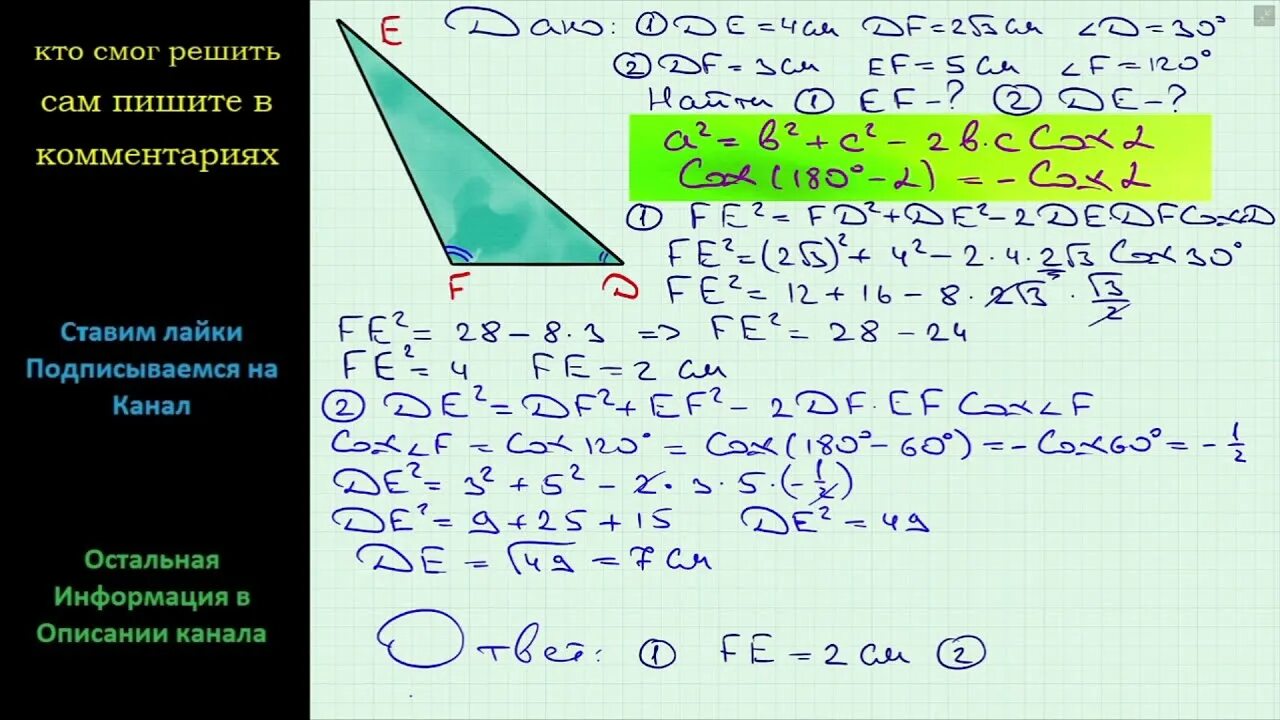 кто смог решить
сам пишите в
комментариях
Ставим лайки
Подписываемся на
Канал
Остальная
Информация в
Описании канала
E
F
D
Дано: ① DE = 4см DF = 2√3 см ∠D = 30°
② DF = 3см EF = 5см ∠F = 120°
Найти ① EF - ? ② DE - ?
a² = b² + c² - 2b·c Cos α
Cos (180° - α) = - Cos α
① FE² = FD² + DE² - 2DE DF Cos D
FE² = (2√3)² + 4² - 2·4·2√3 Cos 30°
FE² = 12 + 16 - 8·2√3 · √3/2
FE² = 28 - 8·3 => FE² = 28 - 24
FE² = 4 FE = 2 см
② DE² = DF² + EF² - 2DF·EF Cos∠F
Cos∠F = Cos 120° = Cos(180° - 60°) = - Cos 60° = - 1/2
DE² = 3² + 5² - 2·3·5·(-1/2)
DE² = 9 + 25 + 15 DE² = 49
DE = √49 = 7 см
Ответ: ① FE = 2 см ②